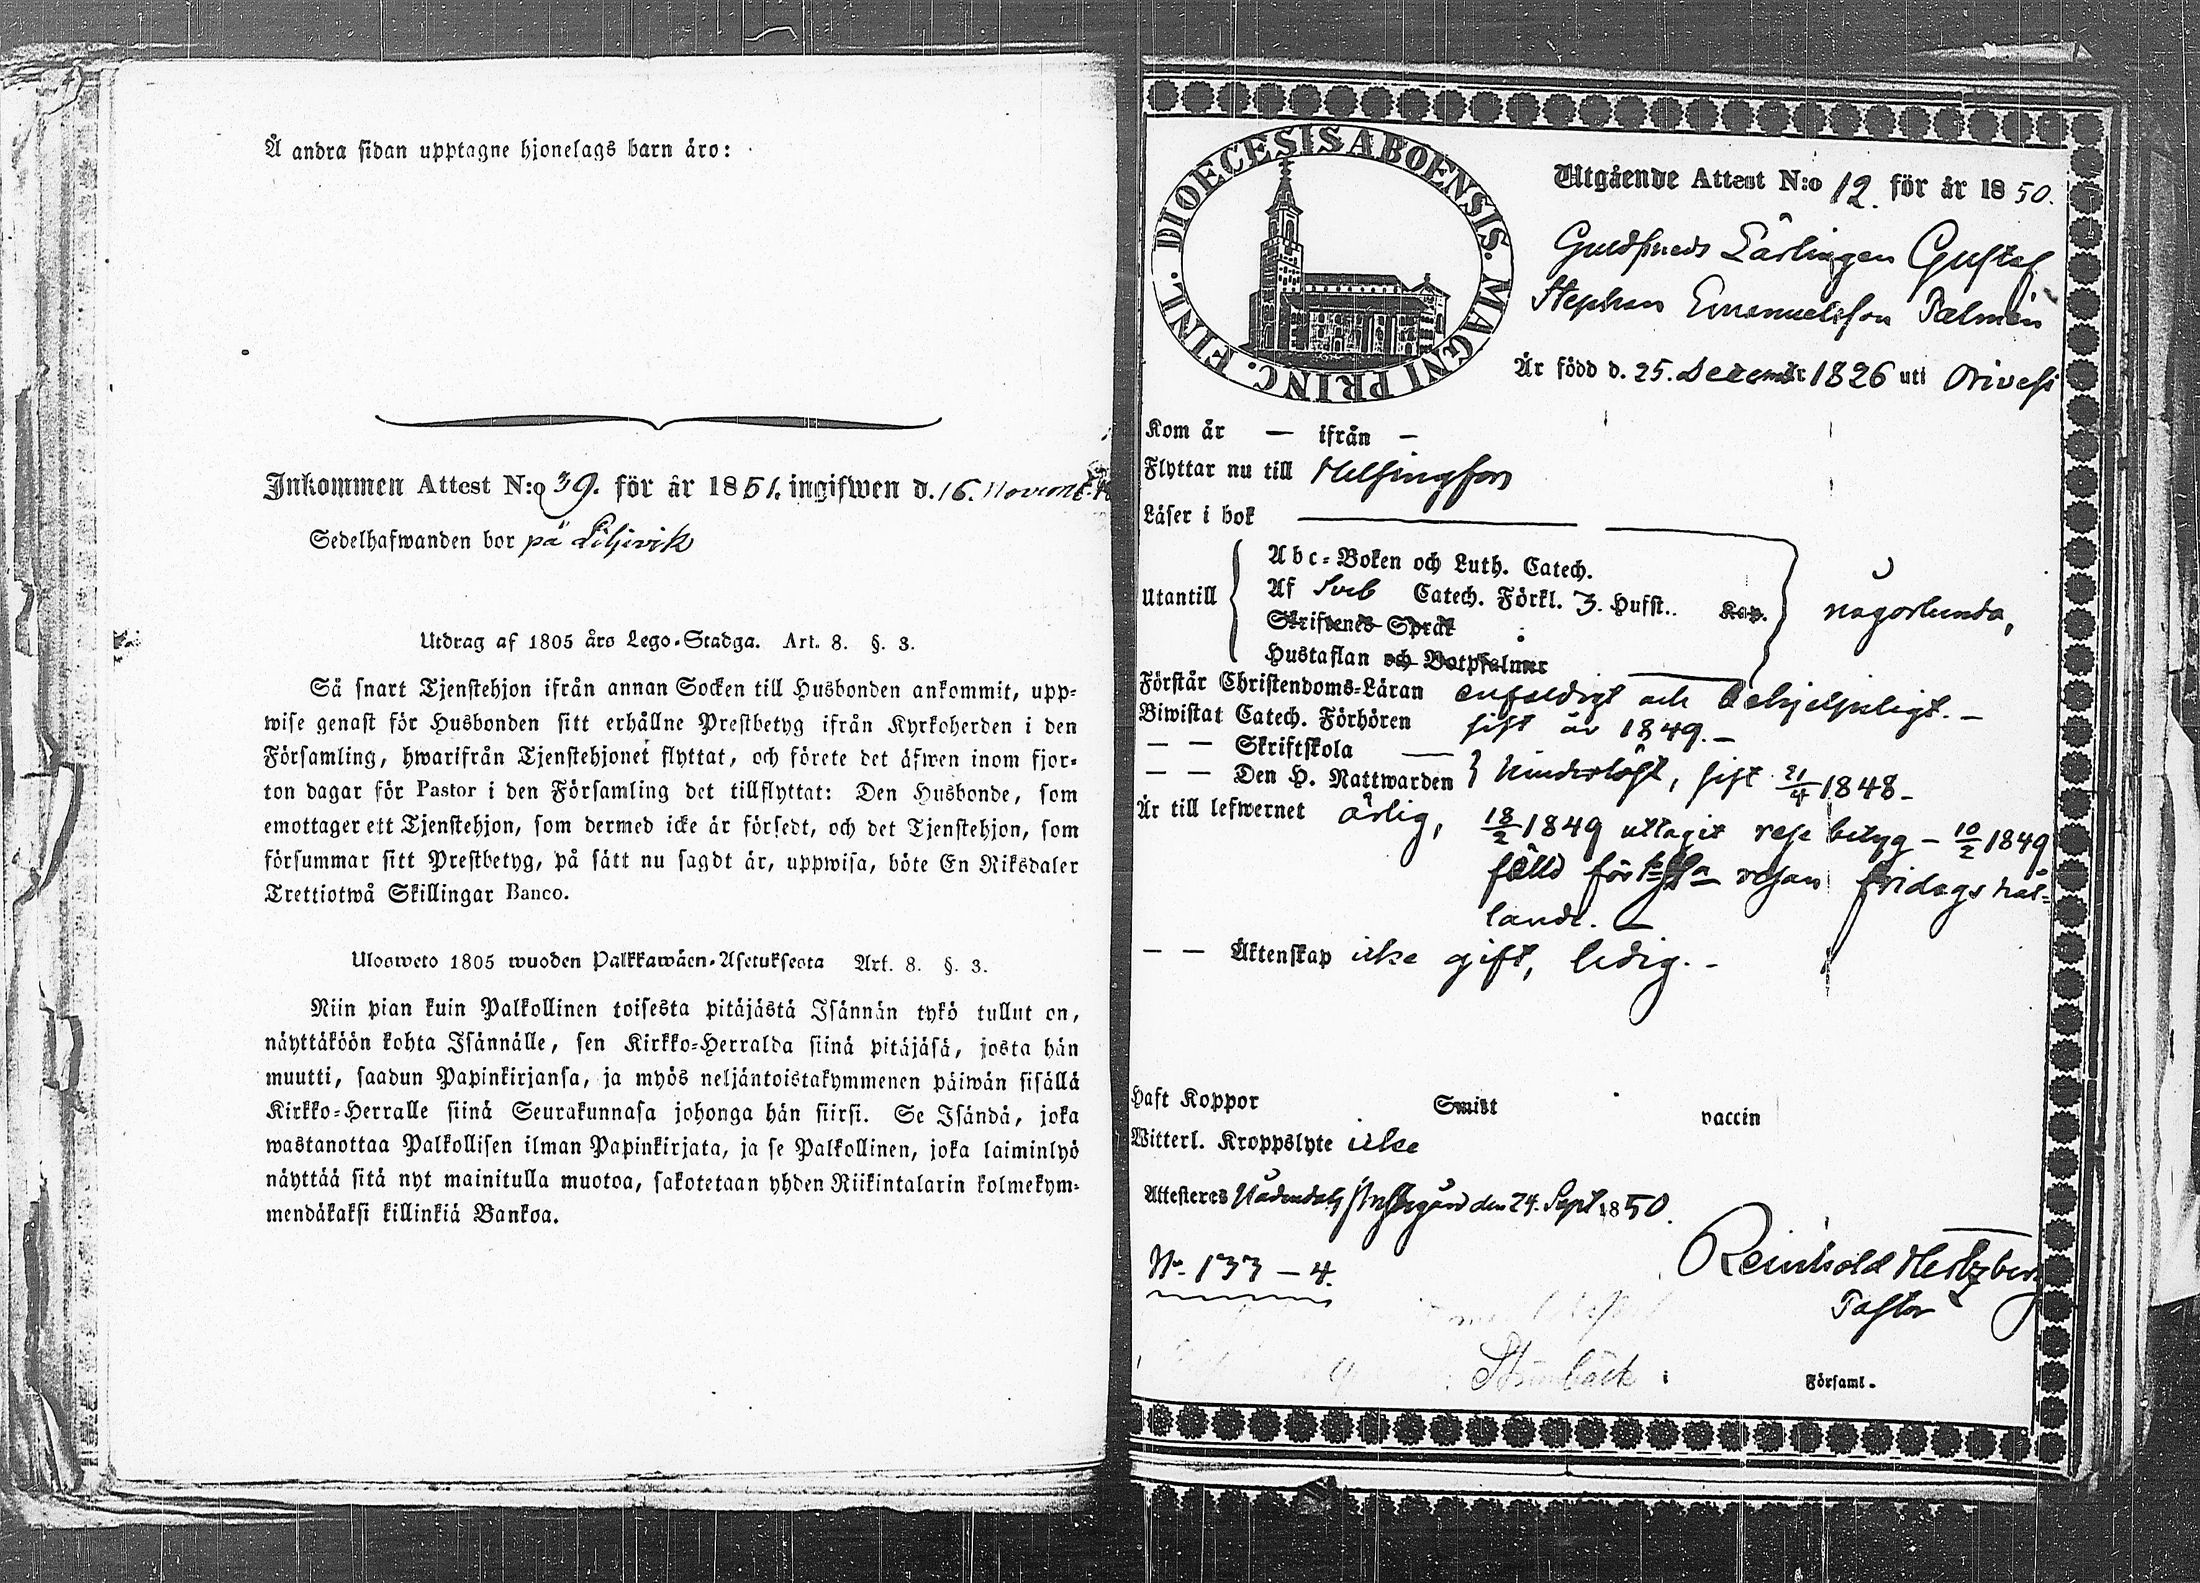 Å andra sidan upptagne hjonelags barn äro:
Inkommen Attest N:o 39. för år 1851. ingifwen d. 16. Novemb.
Sedelhafwanden bor på Liljevik
Utdrag af 1805 års Lego-Stadga. Art. 8. §. 3.
Så snart Tjenstehjon ifrån annan Socken till Husbonden ankommit, upp-
wise genast för Husbonden sitt erhållne Prestbetyg ifrån Kyrkoherden i den
Församling, hwarifrån Tjenstehjonet flyttat, och förete det äfwen inom fjor-
ton dagar för Pastor i den Församling det tillflyttat: Den Husbonde, som
emottager ett Tjenstehjon, som dermed icke är försedt, och det Tjenstehjon, som
försummar sitt Prestbetyg, på sätt nu sagdt är, uppwisa, böte En Riksdaler
Trettiotwå Skillingar Banco.
Ulosweto 1805 wuoden Palkkawäen-Asetuksesta Art. 8. §. 3.
Niin pian kuin Palkollinen toisesta pitäjästä Isännän tykö tullut on,
näyttäköön kohta Isännälle, sen Kirkko-Herralda siinä pitäjäsä, josta hän
muutti, saadun Papinkirjansa, ja myös neljäntoistakymmenen päiwän sisällä
Kirkko-Herralle siinä Seurakunnasa johonga hän siirsi. Se Isändä, joka
wastanottaa Palkollisen ilman Papinkirjata, ja se Palkollinen, joka laiminlyö
näyttää sitä nyt mainitulla muotoa, sakotetaan yhden Riikintalarin kolmekym-
mendäkaksi killinkiä Bankoa.
DIOECESIS ABOENSIS. MAGNI PRINC. FINL.
Utgående Attest N:o 12. för år 1850.
Guldsmeds Lärlingen Gustaf
Stephan Emanuelsson Palmén
Är född d. 25. December 1826 uti Orivesi
Kom år — ifrån —
Flyttar nu till Helsingfors
Läser i bok
Utantill
Abc-Boken och Luth. Catech.
Af Sveb Catech. Förkl. 3. Hufst.. Kap.
Skriftenes Språk
Hustaflan och Botpsalmer
någorlunda,
Förstår Christendoms-Läran enfaldigt och behjelpligt. —
Biwistat Catech. Förhören sist år 1849. —
— — Skriftskola —
— — Den H. Nattwarden hinderlöst, sist 21/4 1848 —
Är till lefwernet ärlig, 18/2 1849 uttagit rese betyg — 10/2 1849
fälld för resan fridags hål-
lande. —
— — Äktenskap icke gift, ledig. —
Haft Koppor Smitt vaccin
Witterl. Kroppslyte icke
Attesteres Nådendals den 24. Sept 1850.
Reinhold Hertzberg
Pastor
No 133 — 4.
Församl.